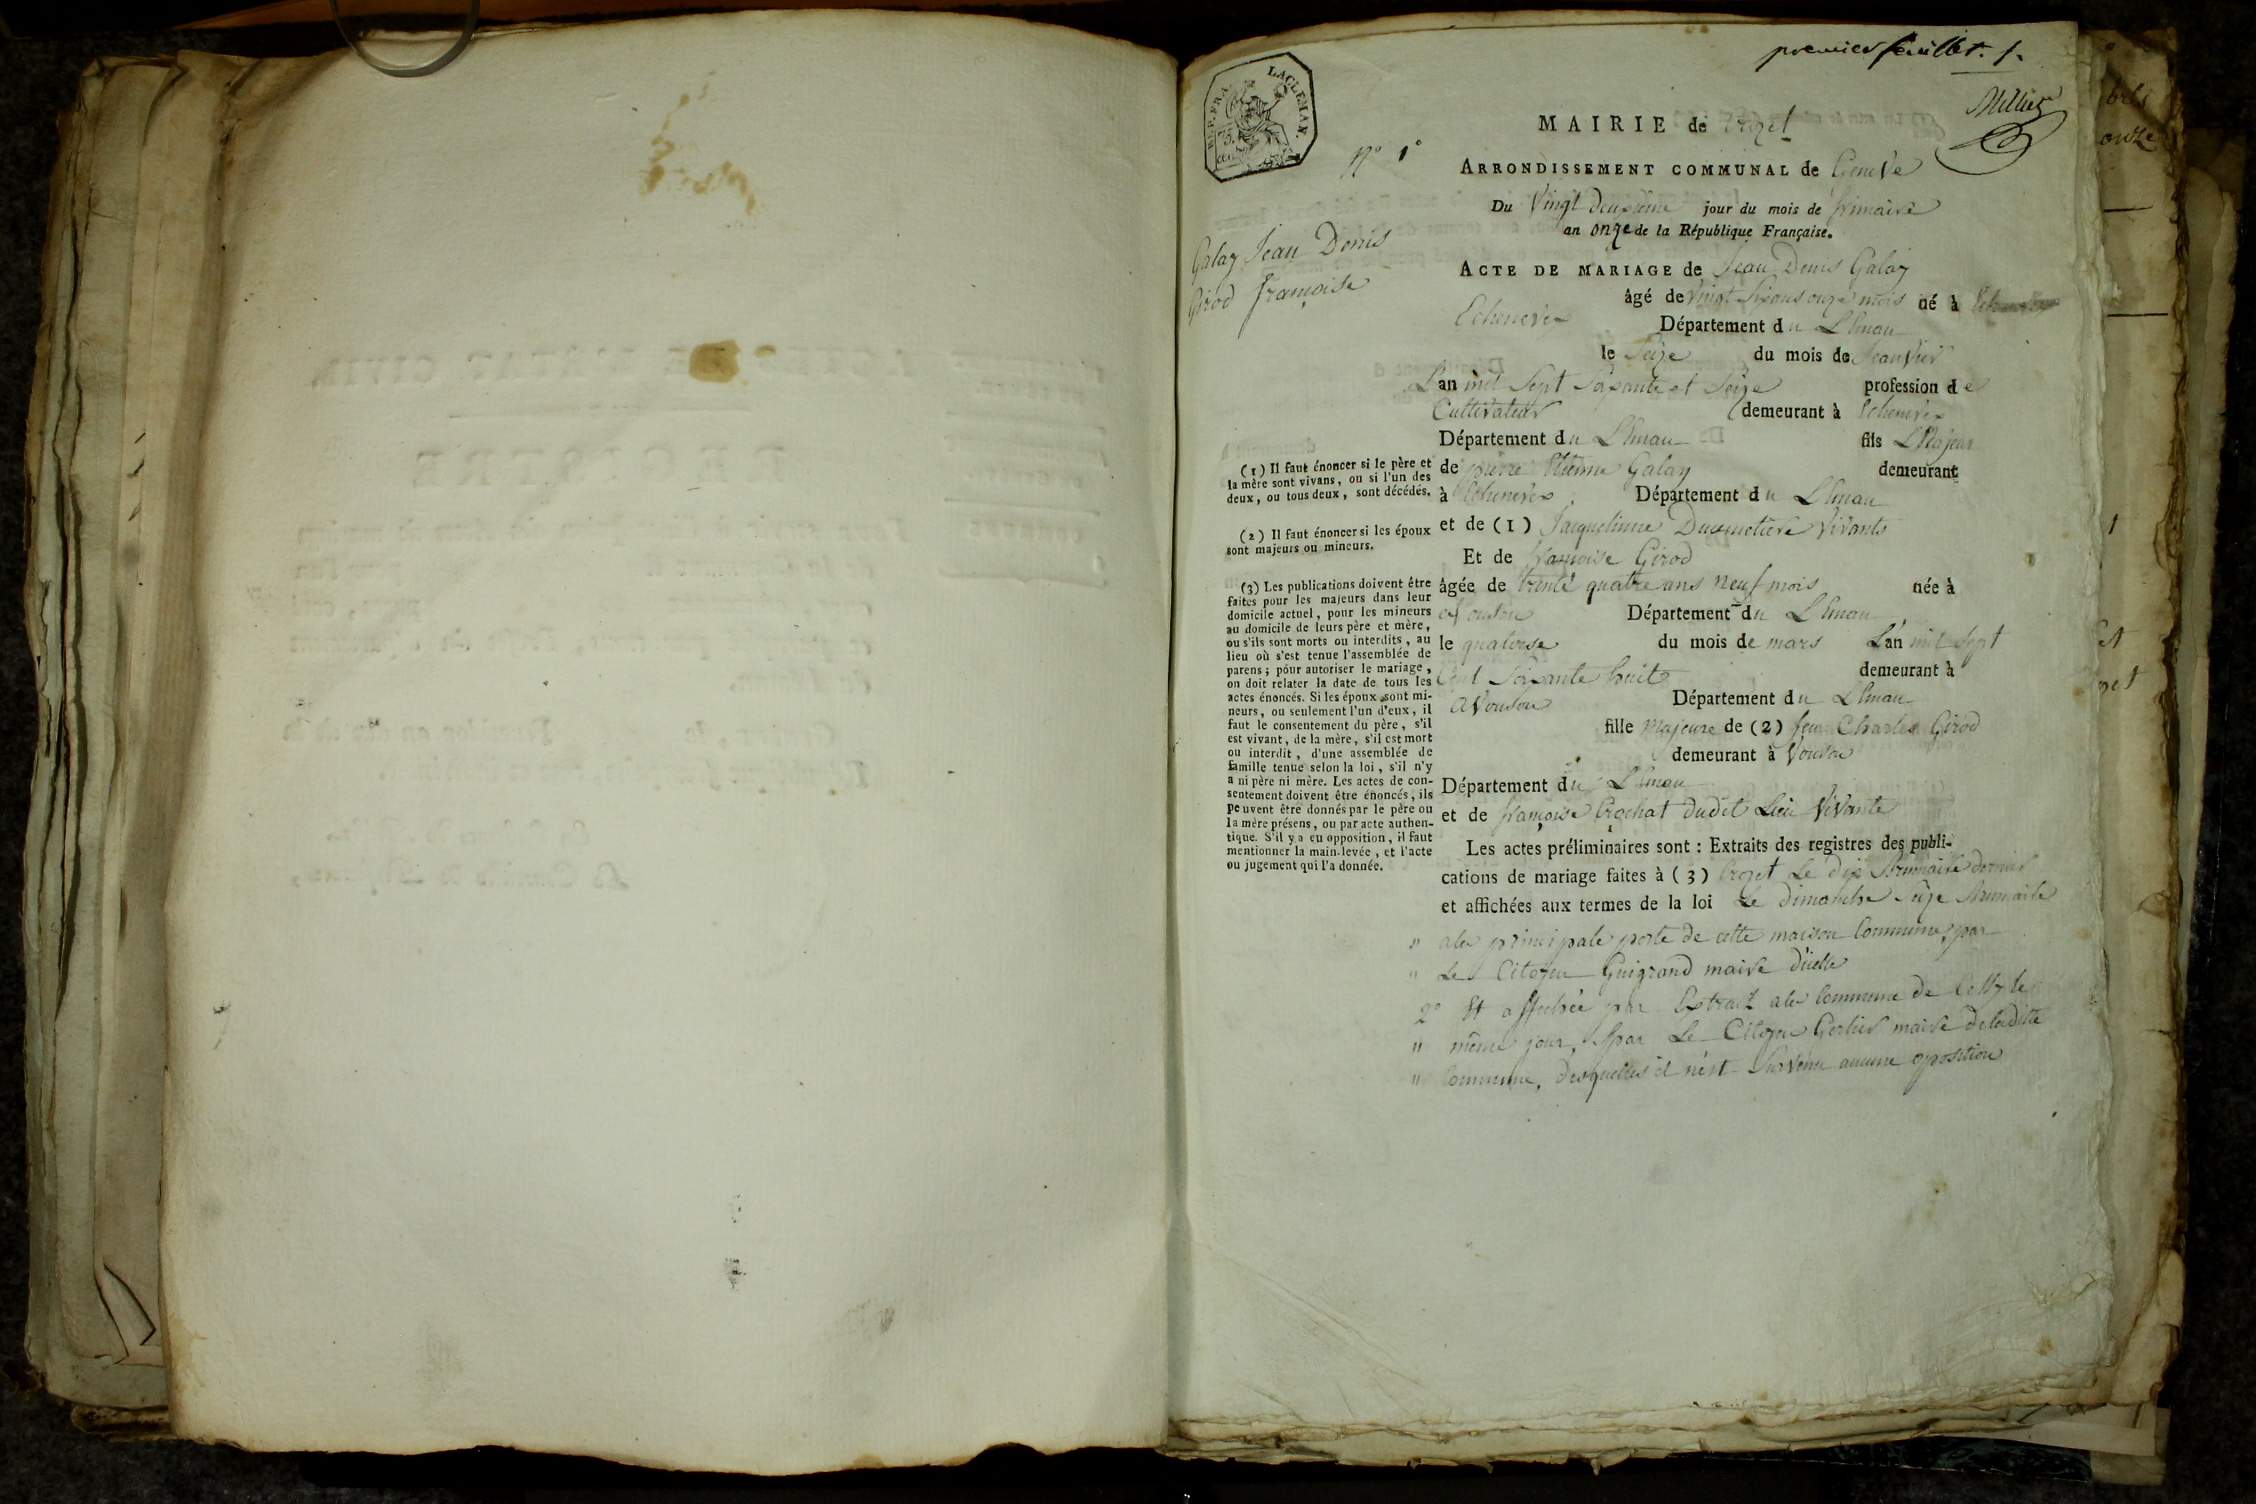 premier feuillet. 1.
Milliet
REP. FRA. LAC LÉMAN.
MAIRIE de Crozet
N° 1°
ARRONDISSEMENT COMMUNAL de Geneve
Du Vingt Deuxieme jour du mois de frimaire
an onze de la République Française.
Galay Jean Denis
Girod françoise
ACTE DE MARIAGE de Jean Denis Galay
âgé de Vingt Six ans onze mois né à
Echenevex Département du Léman
le Seize du mois de Jeanvier
L'an mil Sept Soixante et Seize profession de
Cultivateur demeurant à Echenevex
Département du Léman fils Majeur
de pierre Etienne Galay demeurant
à Echenevex Département du Léman
et de (1) Jacquelinne Ducimetiere Vivants
Et de françoise Girod
âgée de trente quatre ans neuf mois née à
aVouson Département du Léman
le quatorse du mois de mars L'an mil Sept
Cent Soixante huit demeurant à
aVouson Département du Léman
fille Majeure de (2) feu Charles Girod
demeurant à Vouson
Département du Léman
et de françoise Crochat dudit Lieu Vivante
Les actes préliminaires sont : Extraits des registres des publi-
cations de mariage faites à (3) Crozet Le dix Brumaire dernier
et affichées aux termes de la loi Le dimanche Seize Brumaire
" ala principale porte de cette maison Commune, par
" Le Citoyen Guigrand maire d'icelle
2° Et affichée par Extrait ala Commune de Cessy le
" même jour, par Le Citoyen Gerlier maire deladitte
" Commune, desquelles il n'est Survenu aucune oposition
(1) Il faut énoncer si le père et
la mère sont vivans, ou si l'un des
deux, ou tous deux, sont décédés.
(2) Il faut énoncer si les époux
sont majeurs ou mineurs.
(3) Les publications doivent être
faites pour les majeurs dans leur
domicile actuel, pour les mineurs
au domicile de leurs père et mère,
ou s'ils sont morts ou interdits, au
lieu où s'est tenue l'assemblée de
parens ; pour autoriser le mariage,
on doit relater la date de tous les
actes énoncés. Si les époux sont mi-
neurs, ou seulement l'un d'eux, il
faut le consentement du père, s'il
est vivant, de la mère, s'il est mort
ou interdit, d'une assemblée de
famille tenue selon la loi, s'il n'y
a ni père ni mère. Les actes de con-
sentement doivent être énoncés, ils
peuvent être donnés par le père ou
la mère présens, ou par acte authen-
tique. S'il y a eu opposition, il faut
mentionner la main-levée, et l'acte
ou jugement qui l'a donnée.